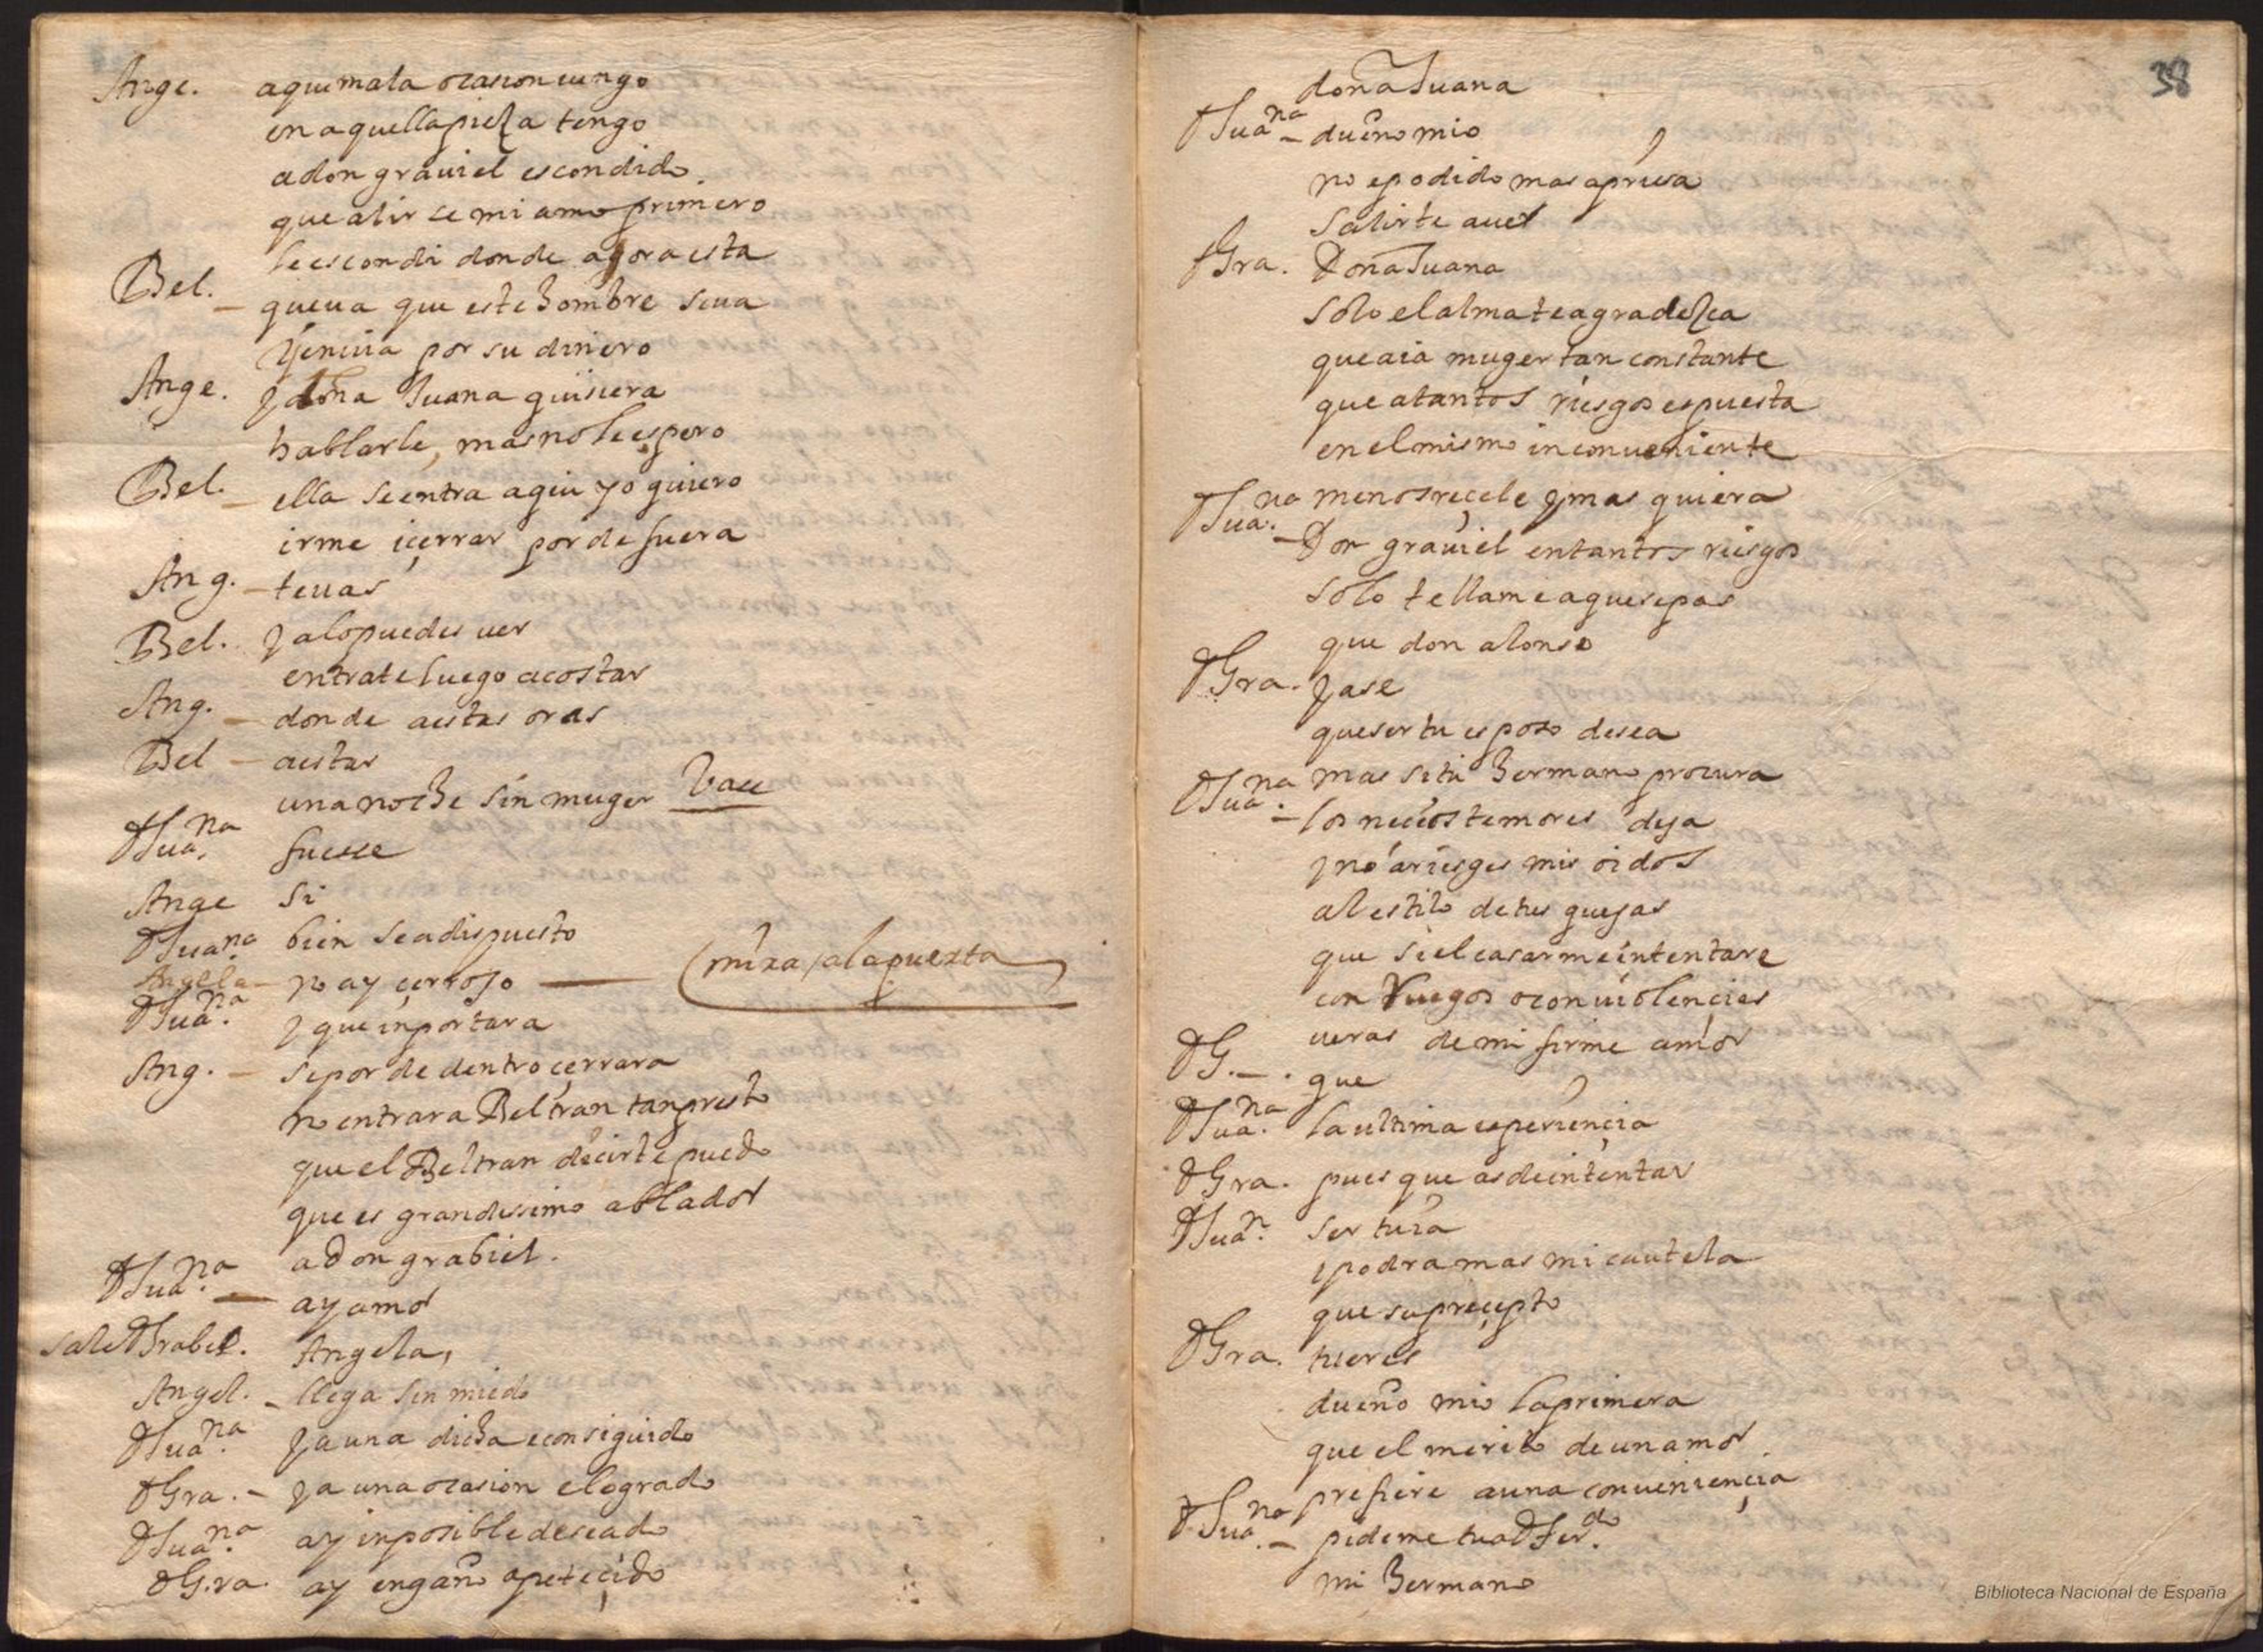 Ange. aque mala ocasion uengo
en aquella pieza tengo
a don grauiel escondido
que al irse mi amo primero
le escondi donde agora esta
Bel. – que ua que este hombre se ua
y enuia por su dinero
Ange. y doña Juana quisiera
hablarle, mas no le espero
Bel. – ella se entra aqui yo quiero
irme i çerrar por de fuera
Ang. – te uas
Bel. ya lo puedes uer
entrate luego acostar
Ang. – donde a estas oras
Bel – a estar
una noche sin muger Vase
DJua.na fuesse
Ange si
DJuana bien se a dispuesto
Angela – no ay çerrojo — (mira a la puerta)
DJua.na y que inportara
Ang. – se por de dentro çerrara
no entrara Beltran tan presto
que el Beltran decirte puedo
que es grandissimo ablador
a don grabiel.
DJua.na – ay amor
sale DGrabiel. Angela,
Angel. – llega sin miedo
DJua.na ya una dicha e consiguido
DGra. – ya una ocasion e logrado
DJua.na ay inposible deseado
DGra. ay engaño apeteçido
38
doña Juana
DJuana – dueño mio
no e podido mas aprisa
salirte a uer
DGra. Doña Juana
solo el alma te agradezca
que aia muger tan constante
que a tantos riesgos espuesta
en el mismo inconueniente
menos reçele y mas quiera
DJua.na – Don grauiel en tantos riesgos
solo te llame a que sepas
que don alonso
DGra. ya se
que ser tu esposo desea
mas si tu hermano procura
DJua.na – los neçios temores deja
y no arriesges mis oidos
al estilo de tus quejas
que si el casarme intentare
con Ruegos o con uiolençias
ueras de mi firme amor
DG. – . que
DJua.na la ultima esperiençia
DGra. pues que as de intentar
DJuan. ser tuia
y podra mas mi cautela
que su preçepto
DGra. tu eres
dueño mio la primera
que el merito de un amor
prefiere a una conueniençia
DJua.na – pideme tu a DFerdo.
mi hermano
Biblioteca Nacional de España